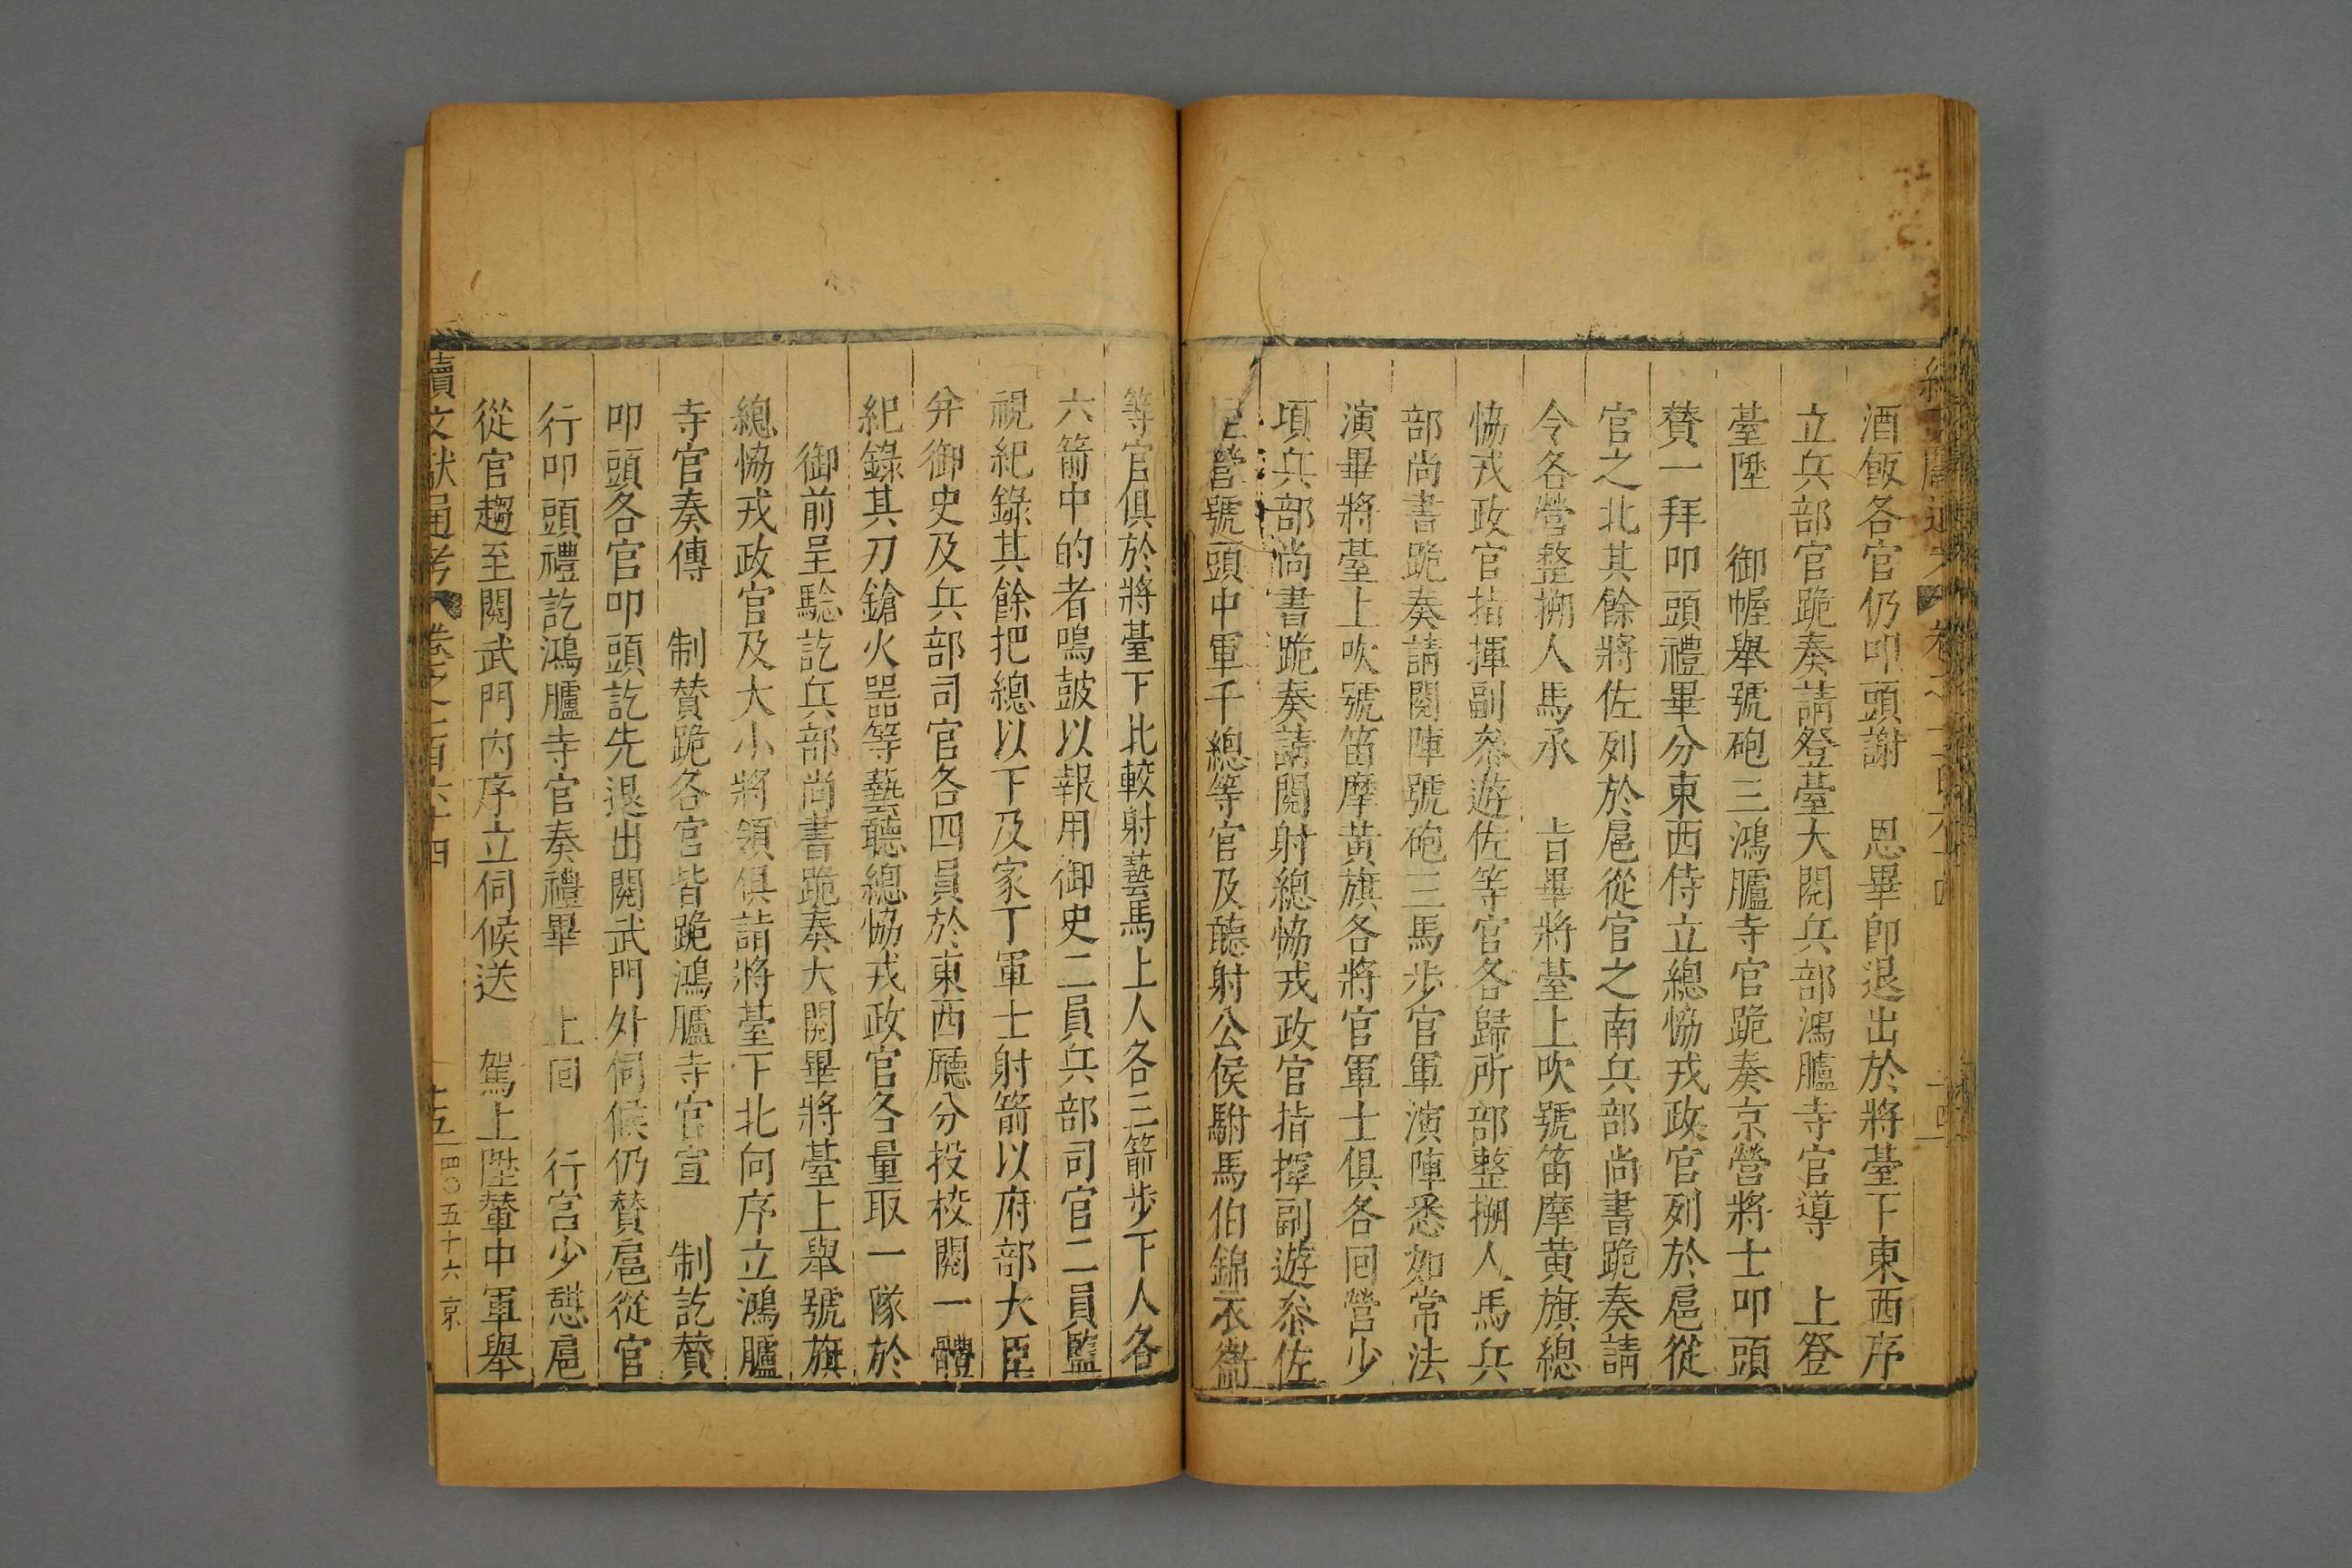 酒飯各官仍叩頭謝　恩畢卽退出於將臺下東西序
立兵部官跪奏請登臺大閱兵部鴻臚寺官導　上登
臺陞　御幄舉號砲三鴻臚寺官跪奏京營將士叩頭
贊一拜叩頭禮畢分東西侍立總恊戎政官列於扈從
官之北其餘將佐列於扈從官之南兵部尚書跪奏請
令各營整搠人馬承　旨畢將臺上吹號笛摩黃旗總
恊戎政官指揮副叅遊佐等官各歸所部整搠人馬兵
部尚書跪奏請閱陣號砲三馬步官軍演陣悉如常法
演畢將臺上吹號笛摩黃旗各將官軍士俱各回營少
項兵部尚書跪奏請閱射總恊戎政官指揮副遊叅佐
營號頭中軍千總等官及聽射公侯駙馬伯錦衣衛
等官俱於將臺下比較射藝馬上人各三箭步下人各
六箭中的者鳴鼓以報用御史二員兵部司官二員監
視紀錄其餘把總以下及家丁軍士射箭以府部大臣
并御史及兵部司官各四員於東西廳分投校閱一體
紀錄其刀鎗火器等藝聽總恊戎政官各量取一隊於
御前呈驗訖兵部尚書跪奏大閱畢將臺上舉號旗
總恊戎政官及大小將領俱詣將臺下北向序立鴻臚
寺官奏傳　制贊跪各官皆跪鴻臚寺官宣　制訖贊
叩頭各官叩頭訖先退出閱武門外伺候仍贊扈從官
行叩頭禮訖鴻臚寺官奏禮畢　上回　行宮少憩扈
從官趨至閱武門內序立伺候送　駕上陞輦中軍舉
續文獻通考　卷之一百六十四　十五　四〇五十六　京